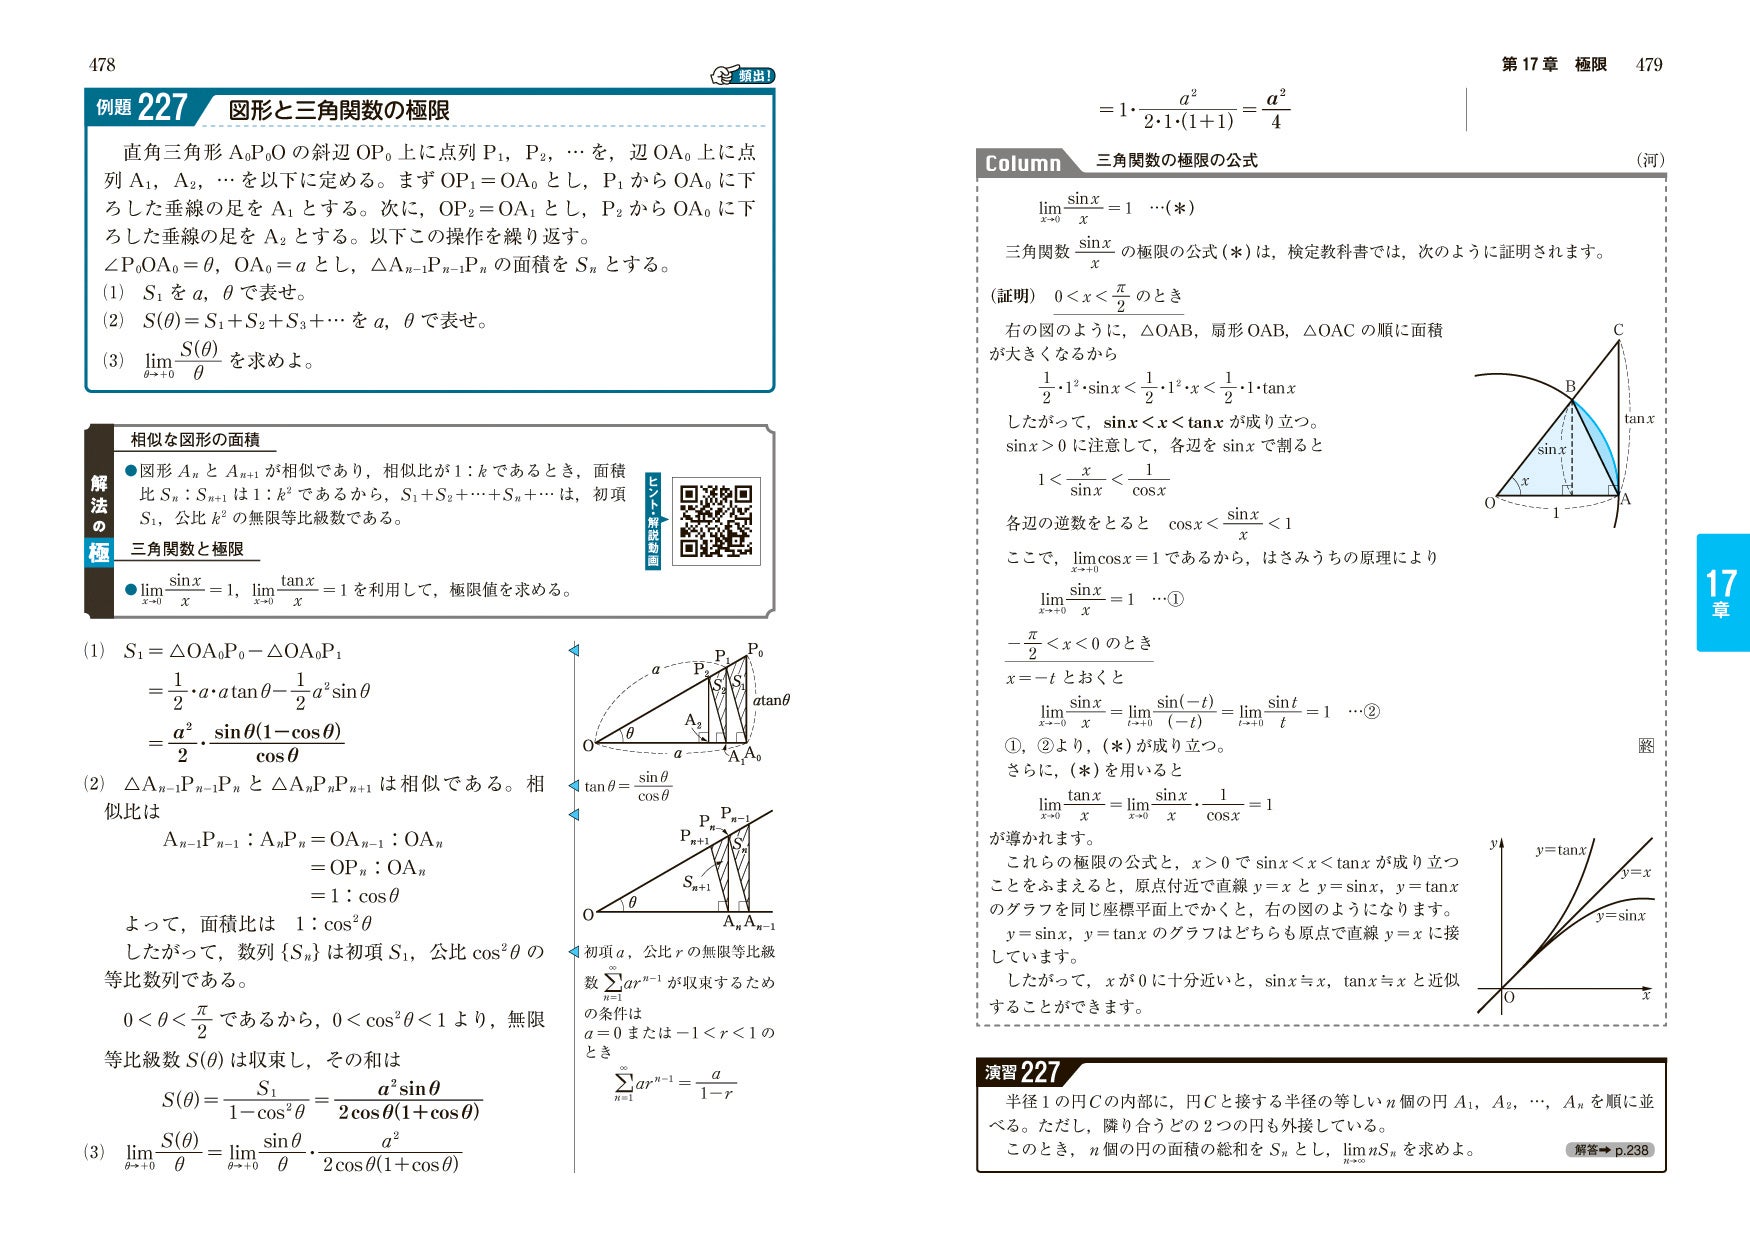 478
頻出!
例題 227 図形と三角関数の極限
直角三角形 A₀P₀O の斜辺 OP₀ 上に点列 P₁，P₂，… を，辺 OA₀ 上に点
列 A₁，A₂，… を以下に定める。まず OP₁＝OA₀ とし，P₁ から OA₀ に下
ろした垂線の足を A₁ とする。次に，OP₂＝OA₁ とし，P₂ から OA₀ に下
ろした垂線の足を A₂ とする。以下この操作を繰り返す。
∠P₀OA₀＝θ，OA₀＝a とし，△Aₙ₋₁Pₙ₋₁Pₙ の面積を Sₙ とする。
(1) S₁ を a，θ で表せ。
(2) S(θ)＝S₁＋S₂＋S₃＋… を a，θ で表せ。
(3) lim_{θ→+0} S(θ)/θ を求めよ。
解法の極
相似な図形の面積
●図形 Aₙ と Aₙ₊₁ が相似であり，相似比が 1：k であるとき，面積
比 Sₙ：Sₙ₊₁ は 1：k² であるから，S₁＋S₂＋…＋Sₙ＋… は，初項
S₁，公比 k² の無限等比級数である。
三角関数と極限
●lim_{x→0} sin x/x ＝1，lim_{x→0} tan x/x ＝1 を利用して，極限値を求める。
ヒント・解説動画
(1) S₁＝△OA₀P₀－△OA₀P₁
＝1/2・a・a tanθ－1/2 a² sinθ
＝a²/2・sinθ(1－cosθ)/cosθ
(2) △Aₙ₋₁Pₙ₋₁Pₙ と △AₙPₙPₙ₊₁ は相似である。相
似比は
Aₙ₋₁Pₙ₋₁：AₙPₙ＝OAₙ₋₁：OAₙ
＝OPₙ：OAₙ
＝1：cosθ
よって，面積比は 1：cos²θ
したがって，数列 {Sₙ} は初項 S₁，公比 cos²θ の
等比数列である。
0＜θ＜π/2 であるから，0＜cos²θ＜1 より，無限
等比級数 S(θ) は収束し，その和は
S(θ)＝S₁/(1－cos²θ)＝a² sinθ/(2cosθ(1＋cosθ))
(3) lim_{θ→+0} S(θ)/θ＝lim_{θ→+0} sinθ/θ・a²/(2cosθ(1＋cosθ))
P₀
P₁
P₂
a
S₂
S₁
a tanθ
A₂
θ
O
a
A₁
A₀
tanθ＝sinθ/cosθ
Pₙ₋₁
Pₙ
Pₙ₊₁
Sₙ
Sₙ₊₁
θ
O
Aₙ
Aₙ₋₁
初項 a，公比 r の無限等比級
数 Σ_{n=1}^{∞} arⁿ⁻¹ が収束するため
の条件は
a＝0 または －1＜r＜1 の
とき
Σ_{n=1}^{∞} arⁿ⁻¹＝a/(1－r)
第17章 極限 479
＝1・a²/(2・1・(1＋1))＝a²/4
Column 三角関数の極限の公式 （河）
lim_{x→0} sin x/x＝1 …(＊)
三角関数 sin x/x の極限の公式(＊)は，検定教科書では，次のように証明されます。
(証明) 0＜x＜π/2 のとき
右の図のように，△OAB，扇形 OAB，△OAC の順に面積
が大きくなるから
1/2・1²・sin x＜1/2・1²・x＜1/2・1・tan x
したがって，sin x＜x＜tan x が成り立つ。
sin x＞0 に注意して，各辺を sin x で割ると
1＜x/sin x＜1/cos x
各辺の逆数をとると cos x＜sin x/x＜1
ここで，lim_{x→+0} cos x＝1 であるから，はさみうちの原理により
lim_{x→+0} sin x/x＝1 …①
－π/2＜x＜0 のとき
x＝－t とおくと
lim_{x→-0} sin x/x＝lim_{t→+0} sin(－t)/(－t)＝lim_{t→+0} sin t/t＝1 …②
①，②より，(＊)が成り立つ。 終
さらに，(＊)を用いると
lim_{x→0} tan x/x＝lim_{x→0} sin x/x・1/cos x＝1
が導かれます。
これらの極限の公式と，x＞0 で sin x＜x＜tan x が成り立つ
ことをふまえると，原点付近で直線 y＝x と y＝sin x，y＝tan x
のグラフを同じ座標平面上でかくと，右の図のようになります。
y＝sin x，y＝tan x のグラフはどちらも原点で直線 y＝x に接
しています。
したがって，x が 0 に十分近いと，sin x≒x，tan x≒x と近似
することができます。
C
B
tan x
sin x
x
O
1
A
y
y＝tan x
y＝x
y＝sin x
O
x
17
章
演習 227
半径 1 の円 C の内部に，円 C と接する半径の等しい n 個の円 A₁，A₂，…，Aₙ を順に並
べる。ただし，隣り合うどの 2 つの円も外接している。
このとき，n 個の円の面積の総和を Sₙ とし，lim_{n→∞} nSₙ を求めよ。
解答➡ p.238